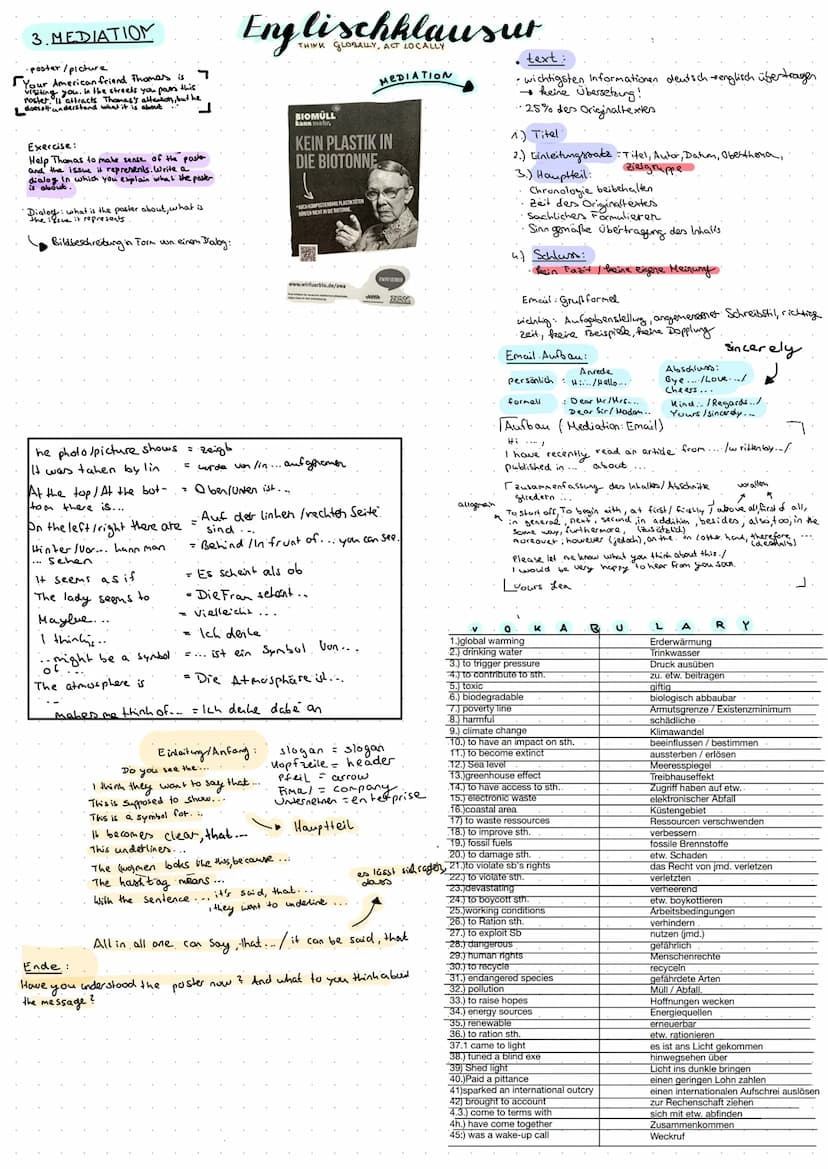 Englischklausur
THINK GLOBALLY, ACT LOCALLY
3. MEDIATION
· poster/picture
Your American friend Thomas is
visiting you. In the streets you pass this
poster. It attracts Thomas's attention, but he
doesn't understand what it is about
Exercise:
Help Thomas to make sense of the poster
and the issue it represents. Write a
dialog in which you explain what the poster
is about.
Dialog: what is the poster about, what is
the issue it represents
Bildbeschreibung in Form von einem Dialog:
MEDIATION
BIOMÜLL
kann mehr.
KEIN PLASTIK IN
DIE BIOTONNE.
*AUCH KOMPOSTIERBARE PLASTIKTÜTEN
GEHÖREN NICHT IN DIE BIOTONNE.
www.wirfuerbio.de/awa
#WIRFUERBIO
· text:
· wichtigsten Informationen deutsch → englisch übertragen
→ keine Übersetzung!
· 25% des Originaltextes
1.) Titel
2.) Einleitungssatz = Titel, Autor, Datum, Oberthema,
Zielgruppe
3.) Hauptteil:
· Chronologie beibehalten
· Zeit des Originaltextes
· Sachliches Formulieren
· Sinngemäße Übertragung des Inhalts
4.) Schluss:
· kein Fazit / keine eigene Meinung
Email: Grußformel
wichtig: Aufgabenstellung, angemessener Schreibstil, richtige
Zeit, keine Beispiele, keine Dopplung
sincerely
Email Aufbau:
Anrede
Abschluss:
persönlich : Hi.../Hello...
Bye .../Love.../
Cheers...
formell : Dear Mr/Mrs...
Dear Sir/Madam..
Kind.../Regards../
Yours/sincerely...
Aufbau (Mediation: Email)
Hi ...,
I have recently read an article from .../written by.../
published in ... about ...
Zusammenfassung des Inhaltes/Abschnitte
gliedern ...
vor allem
allgemein
To start off, To begin with, at first/firstly / above all, first of all,
in general, next, second, in addition, besides, also, too, in the
same way, furthermore, (zusätzlich)
moreover, however (jedoch), on the .. in /other hand, therefore ...
(deshalb)
Please let me know what you think about this./
I would be very happy to hear from you soon.
Yours Lea
he photo/picture shows = zeigt
It was taken by/in = wurde von/in ... aufgenommen
At the top/At the bot- = Oben/Unten ist...
tom there is...
On the left/right there are = Auf der linken/rechten Seite
sind ...
Hinter/Vor... kann man = Behind/In frunt of ... you can see.
... sehen
It seems as if = Es scheint als ob
The lady seems to = Die Frau scheint..
Maybe... = vielleicht ...
I think... = Ich denke
...might be a symbol = ... ist ein Symbol von...
of ...
The atmosphere is = Die Atmosphäre ist...
makes me think of... = Ich denke dabei an
Einleitung/Anfang:
Do you see the...
I think they want to say that...
This is supposed to show...
This is a symbol for...
It becomes clear, that...
This underlines...
The women looks like this, because ...
The hashtag means...
With the sentence ... it's said, that...
, they want to underline ...
slogan = slogan
Kopfzeile = header
Pfeil = arrow
Firma = company
Unternehmen = enterprise
Hauptteil
es lässt sich sagen,
dass
All in all one can say, that.../ it can be said, that
Ende :
Have you understood the poster now? And what to you think about
the message?
VOKABULARY
1.)global warming Erderwärmung
2.) drinking water Trinkwasser
3.) to trigger pressure Druck ausüben
4.) to contribute to sth. zu. etw. beitragen
5.) toxic giftig
6.) biodegradable biologisch abbaubar
7.) poverty line Armutsgrenze / Existenzminimum
8.) harmful schädliche
9.) climate change Klimawandel
10.) to have an impact on sth. beeinflussen / bestimmen
11.) to become extinct aussterben / erlösen
12.) Sea level Meeresspiegel
13.)greenhouse effect Treibhauseffekt
14.) to have access to sth. Zugriff haben auf etw.
15.) electronic waste elektronischer Abfall
16.)coastal area Küstengebiet
17) to waste ressources Ressourcen verschwenden
18.) to improve sth. verbessern
19.) fossil fuels fossile Brennstoffe
20.) to damage sth. etw. Schaden
21.)to violate sb's rights das Recht von jmd. verletzen
22.) to violate sth. verletzten
23.)devastating verheerend
24.) to boycott sth. etw. boykottieren
25.)working conditions Arbeitsbedingungen
26.) to Ration sth. verhindern
27.) to exploit Sb nutzen (jmd.)
28.) dangerous gefährlich
29.) human rights Menschenrechte
30.) to recycle recyceln
31.) endangered species gefährdete Arten
32.) pollution Müll / Abfall.
33.) to raise hopes Hoffnungen wecken
34.) energy sources Energiequellen
35.) renewable erneuerbar
36.) to ration sth. etw. rationieren
37.1 came to light es ist ans Licht gekommen
38.) tuned a blind exe hinwegsehen über
39) Shed light Licht ins dunkle bringen
40.)Paid a pittance einen geringen Lohn zahlen
41)sparked an international outcry einen internationalen Aufschrei auslösen
42) brought to account zur Rechenschaft ziehen
4.3.) come to terms with sich mit etw. abfinden
4h.) have come together Zusammenkommen
45:) was a wake-up call Weckruf